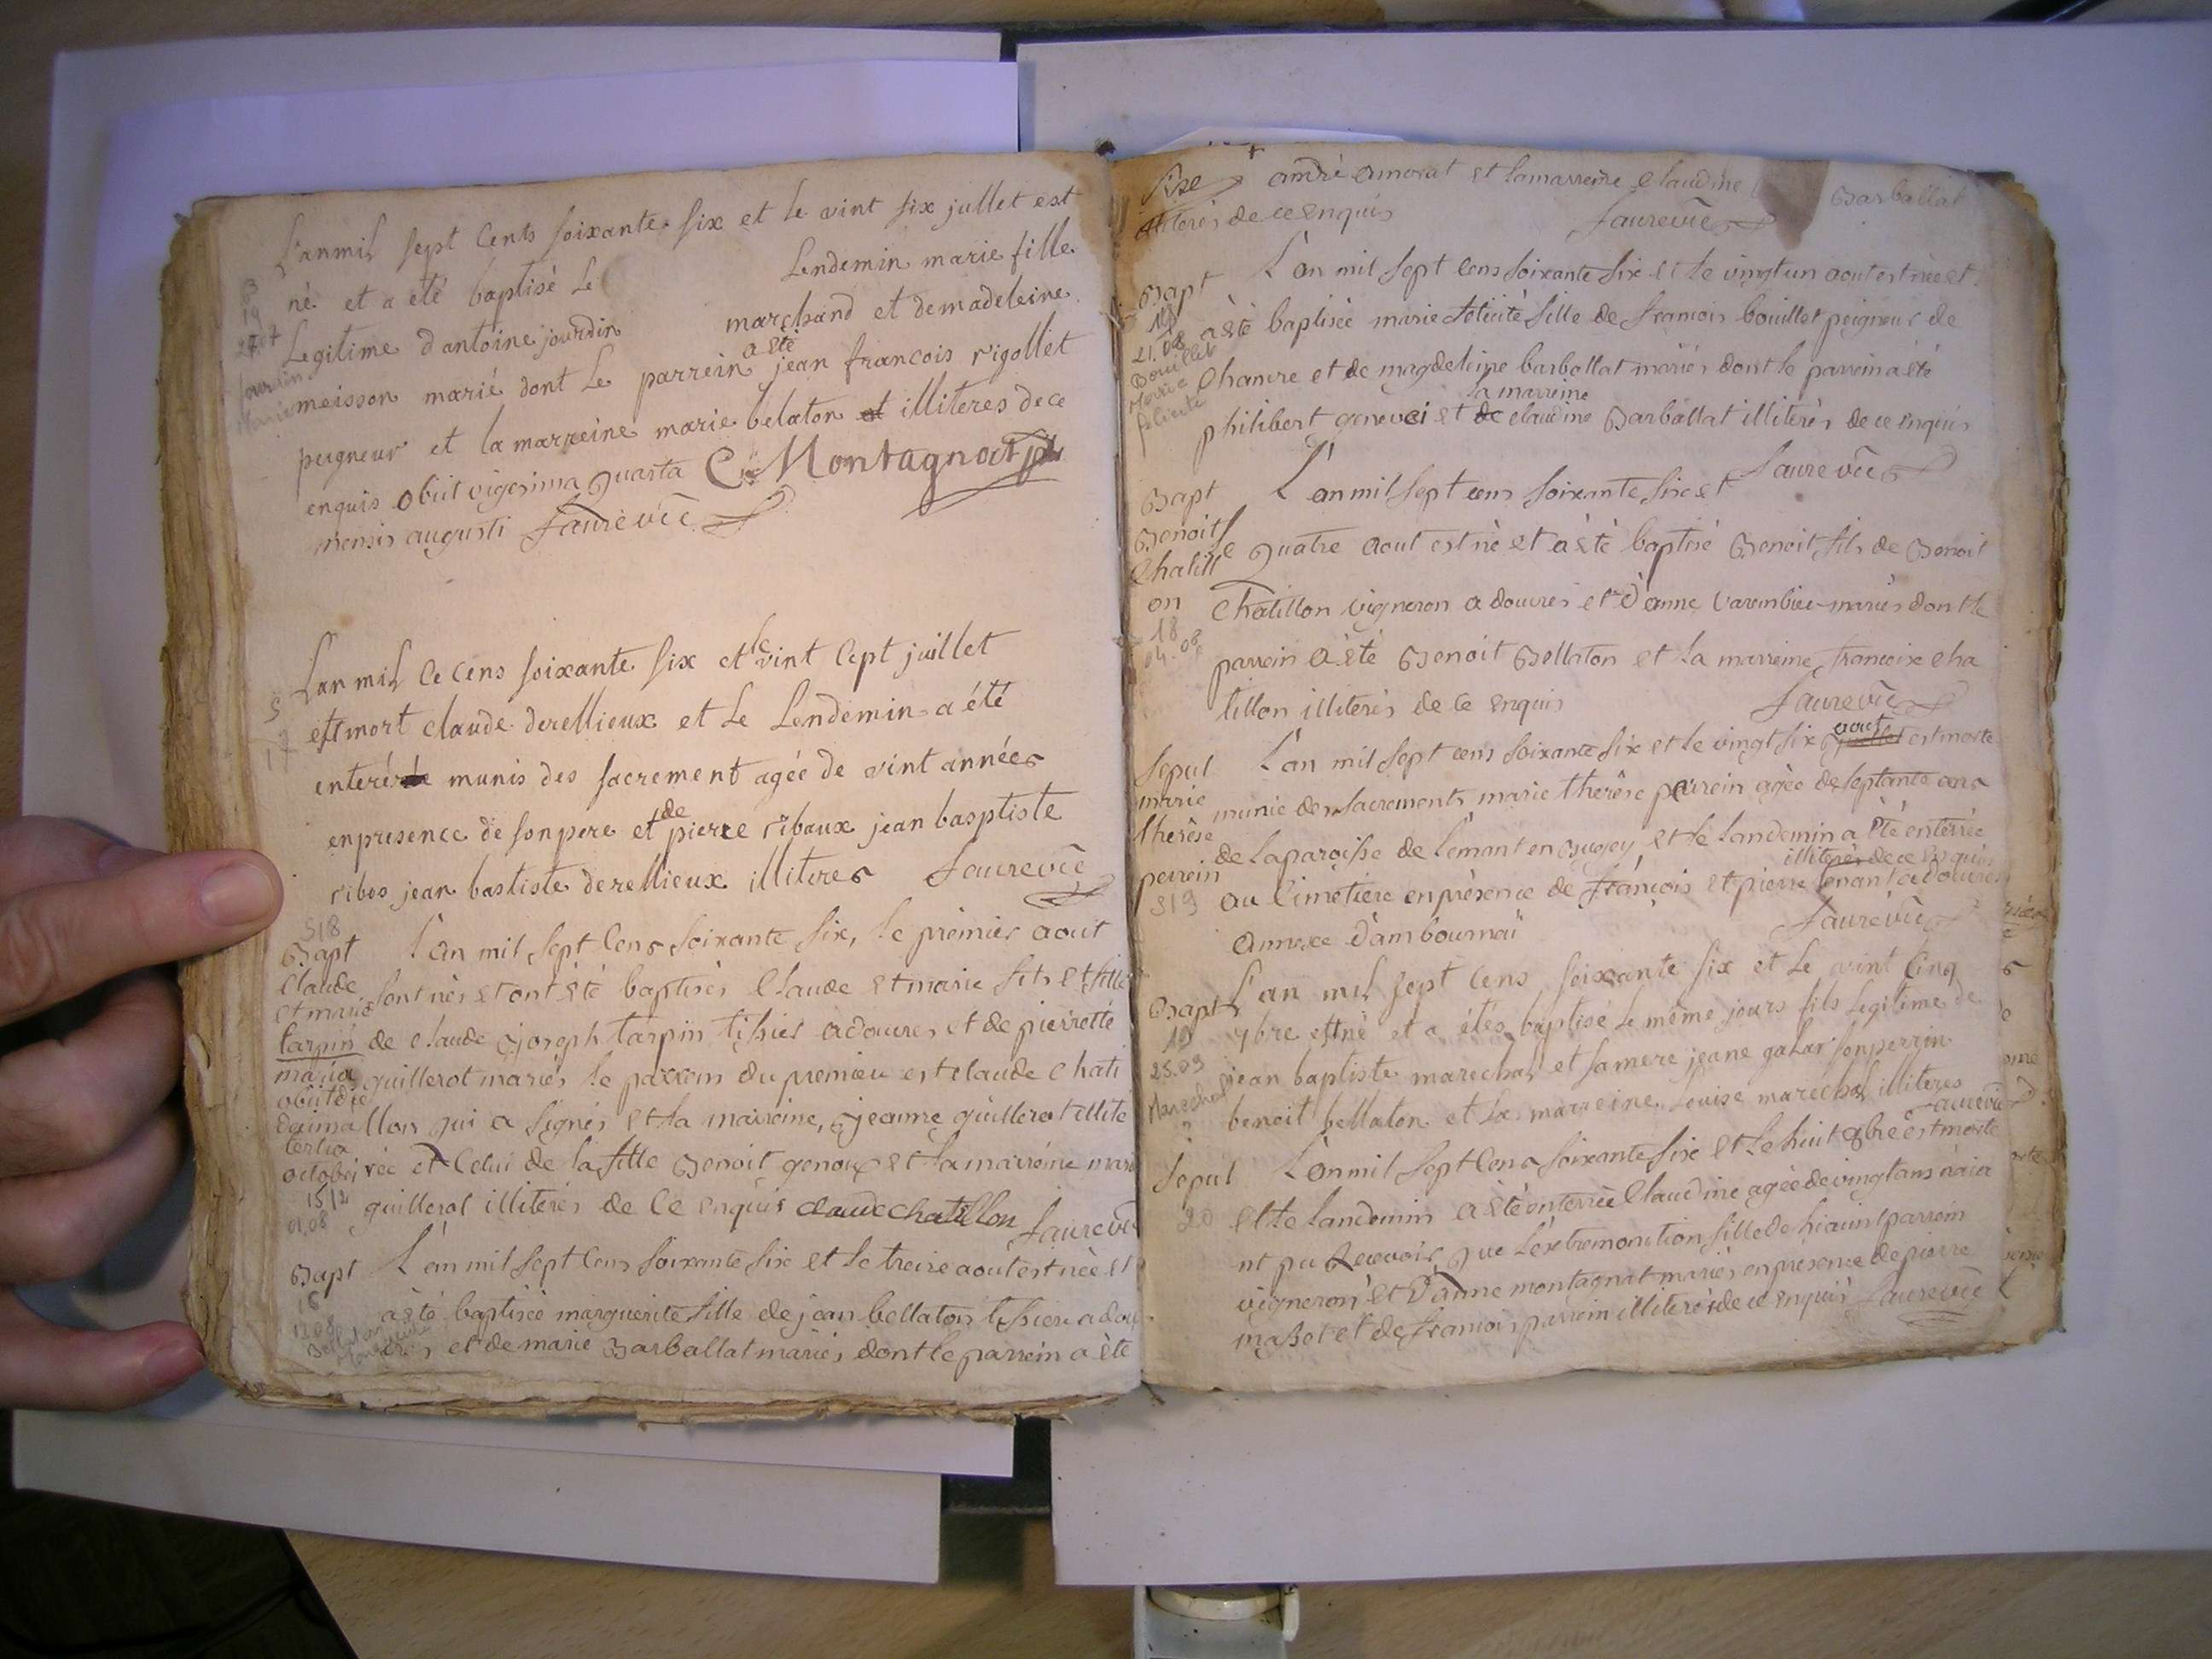 L'anmil sept Cents soixante six et le vint six jullet est
né et a été baptisé Le Lendemin marie fille
Legitime d'antoine jourdin marchand et demadeleine
meisson marié dont Le parrein a été jean francois rigollet
peigneur et la marreine marie belaton illiteres dece
enquis obiit vigesima quarta Montagnat
mensis augusti faure vic
L'an mil Cens soixante six et le vint Cept juillet
est mort claude derellieux et Le Lendemin a été
enteré munis des sacrement agée de vint années
enpresence de son pere et de pierre ribaux jean basptiste
ribos jean bastiste derellieux illiteres faure vic
S18
Bapt
Claude
et marie
tarpin
maria
obiit die
decima
tertia
octobris
01.08
L'an mil sept Cens soixante six, le premier aout
sont nés et ont été baptisés Claude et marie fils et fille
de claude joseph tarpin tissier a douvres et de pierrette
guillerot mariés le parrein du premier est claude chati
llon qui a signés et la marreine, jeanne guillerot illite
rée et Celui de la fille Benoit genoux et la marreine marie
guillerot illiterés de Ce enquis claude chatillon faure vic
Bapt
16
13.08
L'an mil sept Cens soixante six et le treize aoút est née et
a été baptisée marguerite fille de jean bellaton tissier a dou
vres et de marie Barballat mariés dont le parrein a été
andré amorat et la marreine claudine Barballat
illiterés de ce enquis faure vic
Bapt
21.08
Bouillet
Marie
felicité
L'an mil sept Cens soixante six et le vingt un aout est née et
a été baptisée marie felicité fille de francois bouillet peigneur de
Chanvre et de magdeleine barballat mariés dont le parrein a été
philibert genevei et la marreine claudine Barballat illiterés de ce enquis
faure vic
Bapt
Benoit
Chatill
on
18
04.08
L'an mil sept cens soixante six et
le quatre aout est né et a été baptisé Benoit fils de Benoit
Chatillon vigneron a douvres et d'anne mariés dont le
parrein a été Benoit Bellaton et la marreine francoise cha
tillon illiterés de ce enquis faure vic
Sepul
marie
therése
perrein
S19
L'an mil sept cens soixante six et le vingt six aout est morte
munie des sacrements marie therése perrein agée de septante ans
de la paroisse de et le landemin a été enterrée
au Cimetiere en présence de françois et pierre tenant a douvres
illiterés de ce enquis
annexe d'ambournaï faure vic
Bapt
19
25.09
Marechal
L'an mil sept Cens soixante six et Le vint Cinq
7bre est né et a étés baptisé le même jours fils legitime de
jean baptiste marechal et sa mere jeane son perrin
benoit bellaton et la marreine Louise marechal illiteres
faure vic
Sepul
20
L'an mil sept Cens soixante six et le huit 8bre est morte
et le landemin a été enterrée Claudine agée de vingt ans
nt pu recevoir que l'extremonction fille de hiacint parrein
vigneron et d'anne montagnat mariés en présence de pierre
maßot et de francois parrein illiterés de ce enquis faure vic